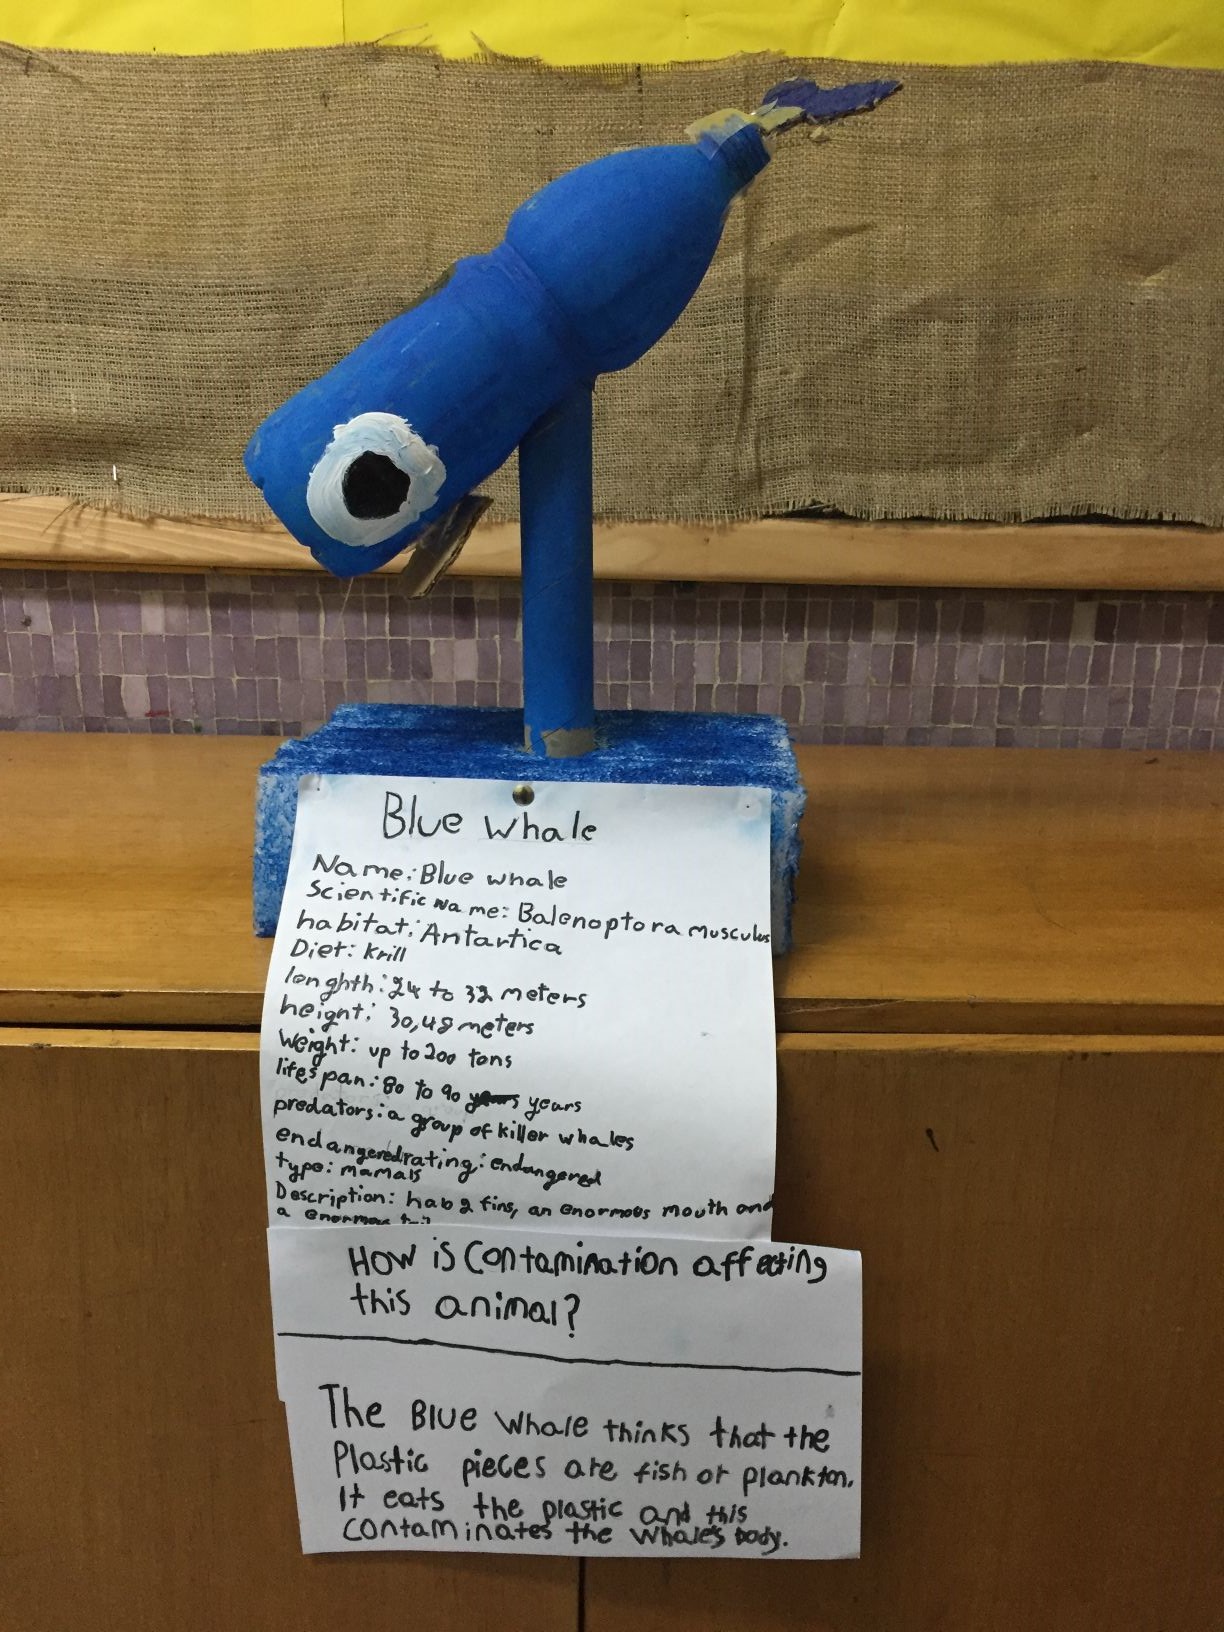 Blue whale
Name: Blue whale
Scientific Name: Balenoptora musculus
habitat: Antartica
Diet: krill
lenghth: 24 to 32 meters
height: 30,48 meters
Weight: up to 200 tons
lifespan: 80 to 90 years years
predators: a group of killer whales
endangeredrating: endangered
type: mamals
Description: hab 2 fins, an enormous mouth and
a enormous tail
How is contamination affecting
this animal?
The Blue Whale thinks that the
Plastic pieces are fish or plankton.
It eats the plastic and this
contaminates the whale's body.